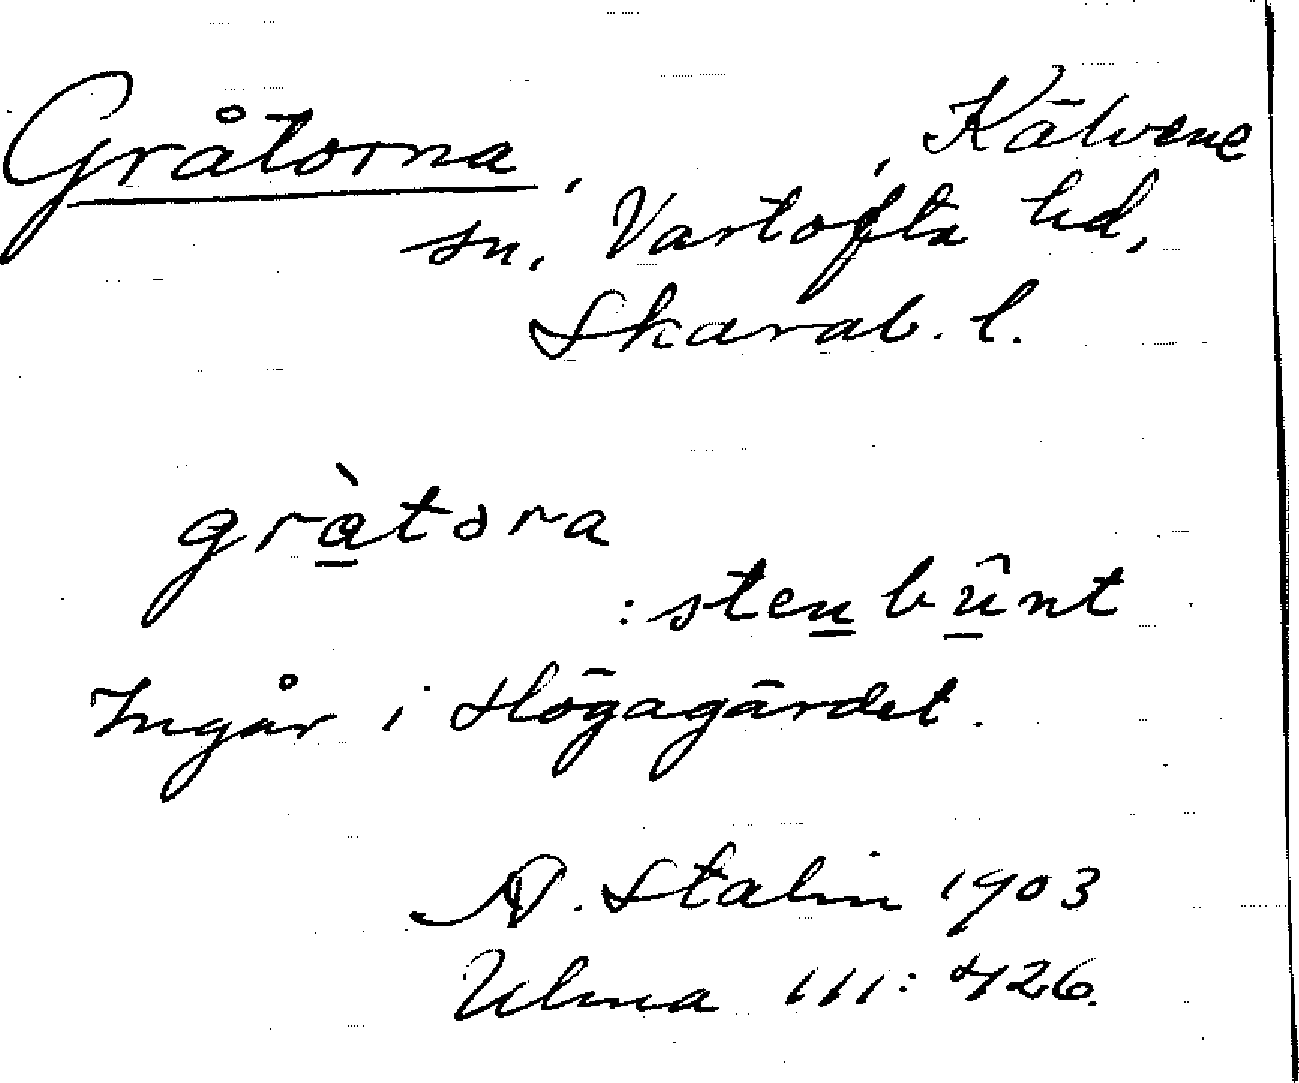 Gråtorna, , Kälvene
sn, Vartofta hd,
Skarab. l.
gràtora
: stenbûnt
Ingår i Högagärdet.
Stalin 1903
Ulma 111: 426.